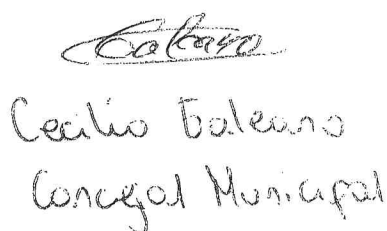 Galeano
Cecilio Galeano
Concejal Municipal